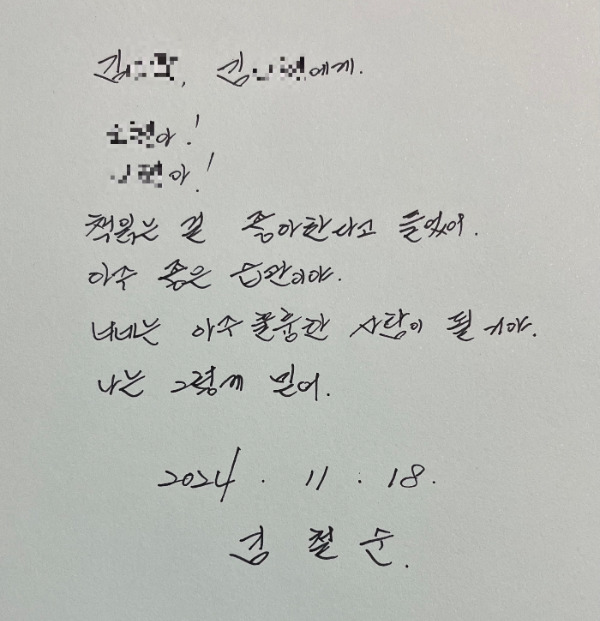 김 , 김 에게.
아!
아!
책읽는 걸 좋아한다고 들었어.
아주 좋은 습관이야.
너네는 아주 훌륭한 사람이 될 거야.
나는 그렇게 믿어.
2024. 11. 18.
김 철 순.